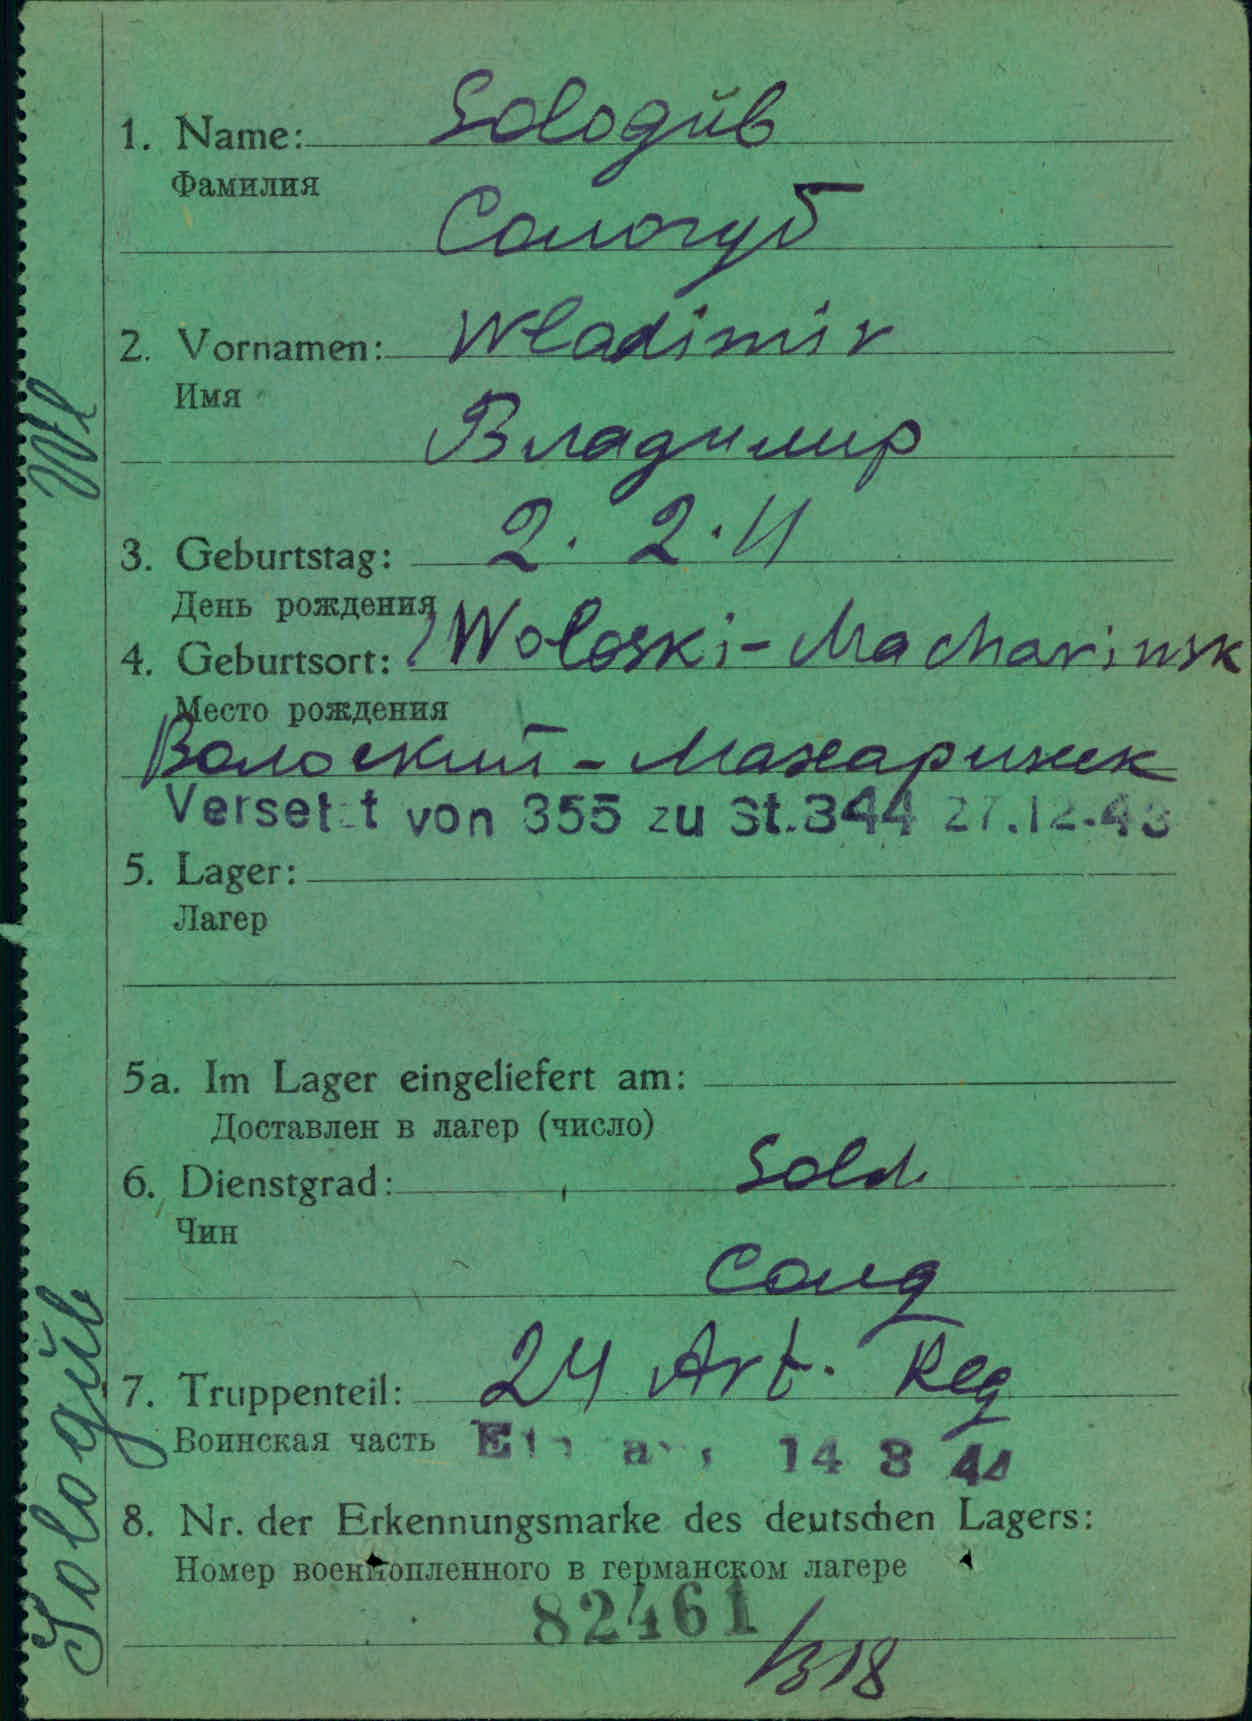 1. Name: Sologŭb
Фамилия
Сологуб
2. Vornamen: Wladimir
Имя
Владимир
3. Geburtstag: 2. 2. 11
День рождения
4. Geburtsort: Woloski-Macharinsk
Место рождения
Волоский-Махаринск
Versetzt von 355 zu St.344 27.12.43
5. Lager:
Лагер
5a. Im Lager eingeliefert am:
Доставлен в лагер (число)
6. Dienstgrad: Sold.
Чин
Солд
7. Truppenteil: 24 Art. Reg
Воинская часть
14 8 44
8. Nr. der Erkennungsmarke des deutschen Lagers:
Номер военнопленного в германском лагере
82461
/318
Sologŭb Wl